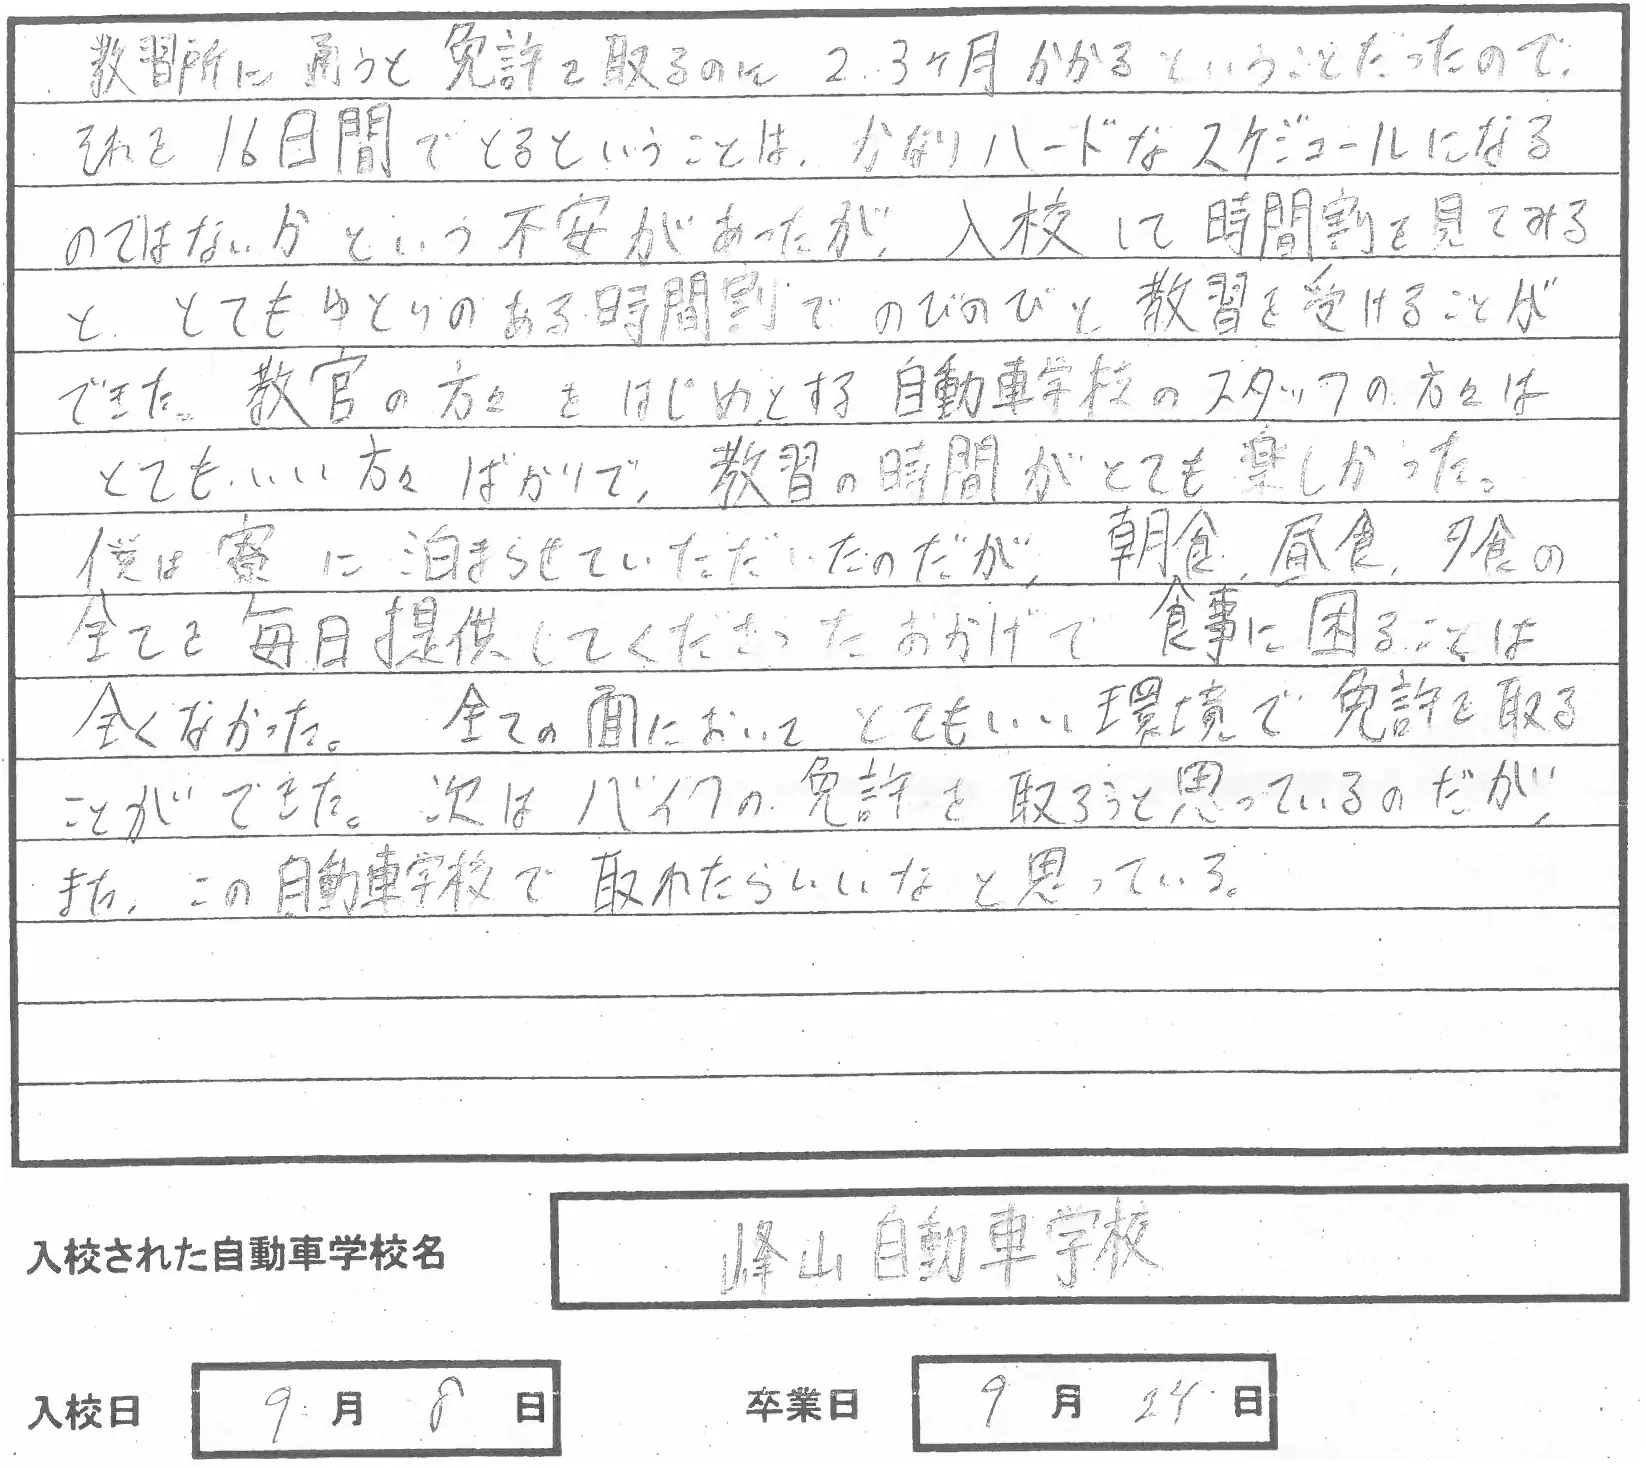 教習所に通うと免許を取るのに2.3ヶ月かかるということだったので、
それを16日間でとるということは、かなりハードなスケジュールになる
のではないかという不安があったが、入校して時間割を見てみる
と、とてもゆとりのある時間割でのびのびと教習を受けることが
できた。教官の方々をはじめとする自動車学校のスタッフの方々は
とてもいい方々ばかりで、教習の時間がとても楽しかった。
僕は寮に泊まらせていただいたのだが、朝食、昼食、夕食の
全てを毎日提供してくださったおかげで食事に困ることは
全くなかった。全ての面においてとてもいい環境で免許を取る
ことができた。次はバイクの免許を取ろうと思っているのだが、
また、この自動車学校で取れたらいいなと思っている。
入校された自動車学校名 峰山自動車学校
入校日 9月8日 卒業日 9月24日